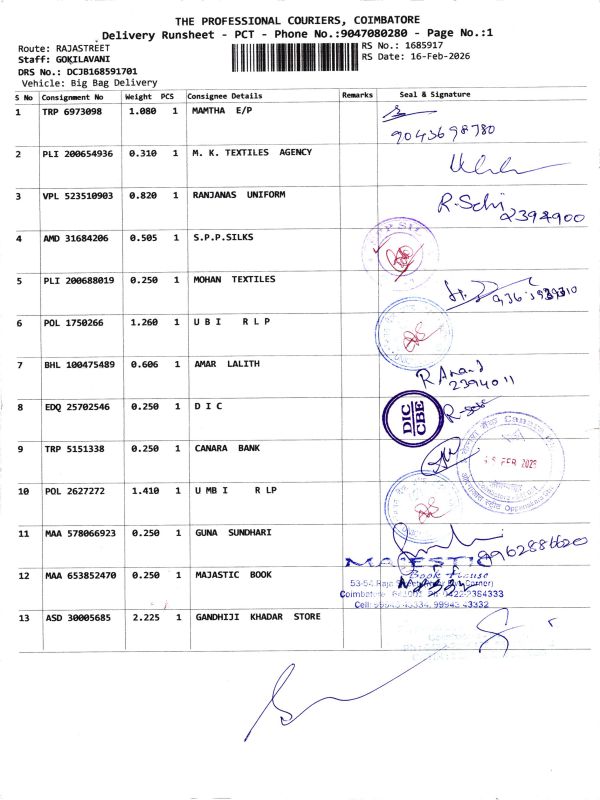 THE PROFESSIONAL COURIERS, COIMBATORE
Delivery Runsheet - PCT - Phone No.:9047080280 - Page No.:1
Route: RAJASTREET
RS No.: 1685917
Staff: GOKILAVANI
RS Date: 16-Feb-2026
DRS No.: DCJB168591701
Vehicle: Big Bag Delivery
S No Consignment No Weight PCS Consignee Details Remarks Seal & Signature
1 TRP 6973098 1.080 1 MAMTHA E/P
9043698780
2 PLI 200654936 0.310 1 M. K. TEXTILES AGENCY
3 VPL 523510903 0.820 1 RANJANAS UNIFORM
4 AMD 31684206 0.505 1 S.P.P.SILKS
5 PLI 200688019 0.250 1 MOHAN TEXTILES
6 POL 1750266 1.260 1 U B I R L P
7 BHL 100475489 0.606 1 AMAR LALITH
R Anand
2394011
8 EDQ 25702546 0.250 1 D I C
DIC
CBE
9 TRP 5151338 0.250 1 CANARA BANK
10 POL 2627272 1.410 1 U MB I R LP
11 MAA 578066923 0.250 1 GUNA SUNDHARI
MAJESTIC
12 MAA 653852470 0.250 1 MAJASTIC BOOK
Book House
13 ASD 30005685 2.225 1 GANDHIJI KHADAR STORE